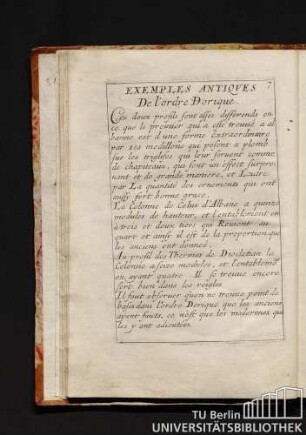 7
EXEMPLES ANTIQUES
De l'ordre Dorique
Ces deux profils sont assés differends en
ce que le premier qui a esté trouvé a al
banne est d'une forme Extraordinaire
par ses modillons qui posent a plomb
sur les triglifes qui leur servent comme
de chapiteaux, qui font un effet surpre
nant et de grande maniere, et L'autre
par La quantité des ornements qui ont
aussy fort bonne grace.
La Colonne de Celuy d'Albane a quinze
modules de hauteur, et l'entablement en
a trois et deux tiers qui Revient au
quart et ainsy il est de la proportion que
les anciens ont donneé.
Au profil des Thermes de Diocletian la
Colonne a seize modules, et l'entablement
en ayant quatre Il se trouve encore
fort bien dans les reigles
Il faut observer qu'on ne trouve point de
base dans l'ordre Dorique que les anciens
ayent faicts, ce n'est que les modernes qui
les y ont adioutées
TU Berlin
UNIVERSITÄTSBIBLIOTHEK